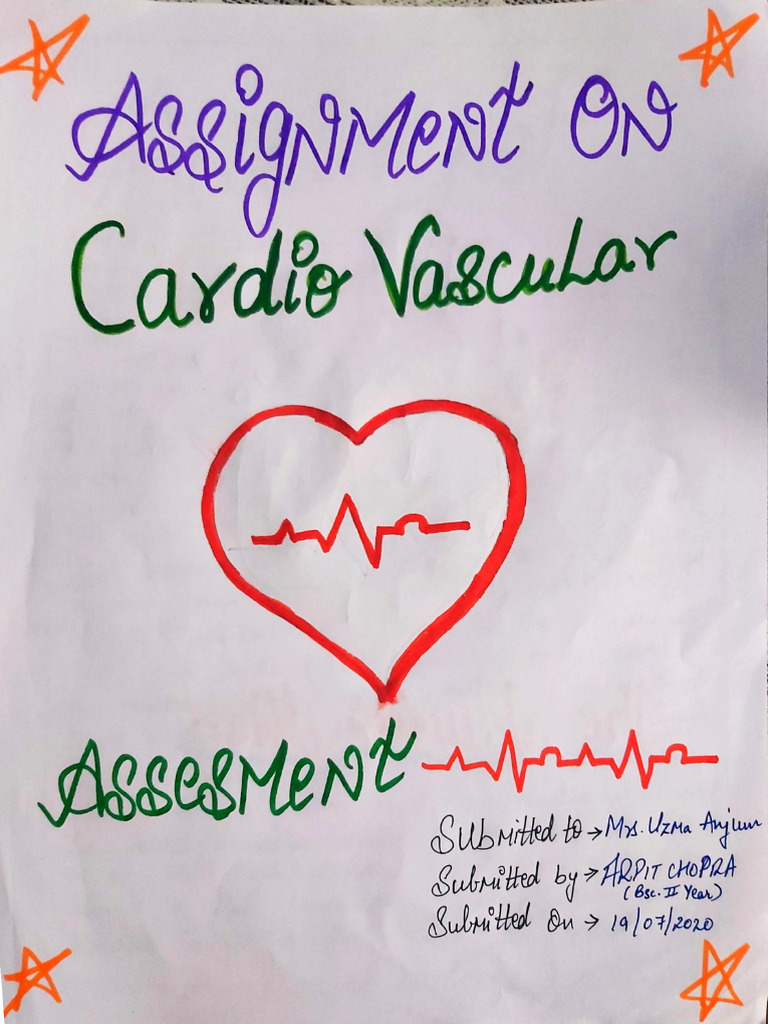 Assignment On
Cardio Vascular
Assesment
Submitted to → Mrs. Uzma Anjum
Submitted by → ARPIT CHOPRA
(Bsc. II Year)
Submitted On → 19/07/2020